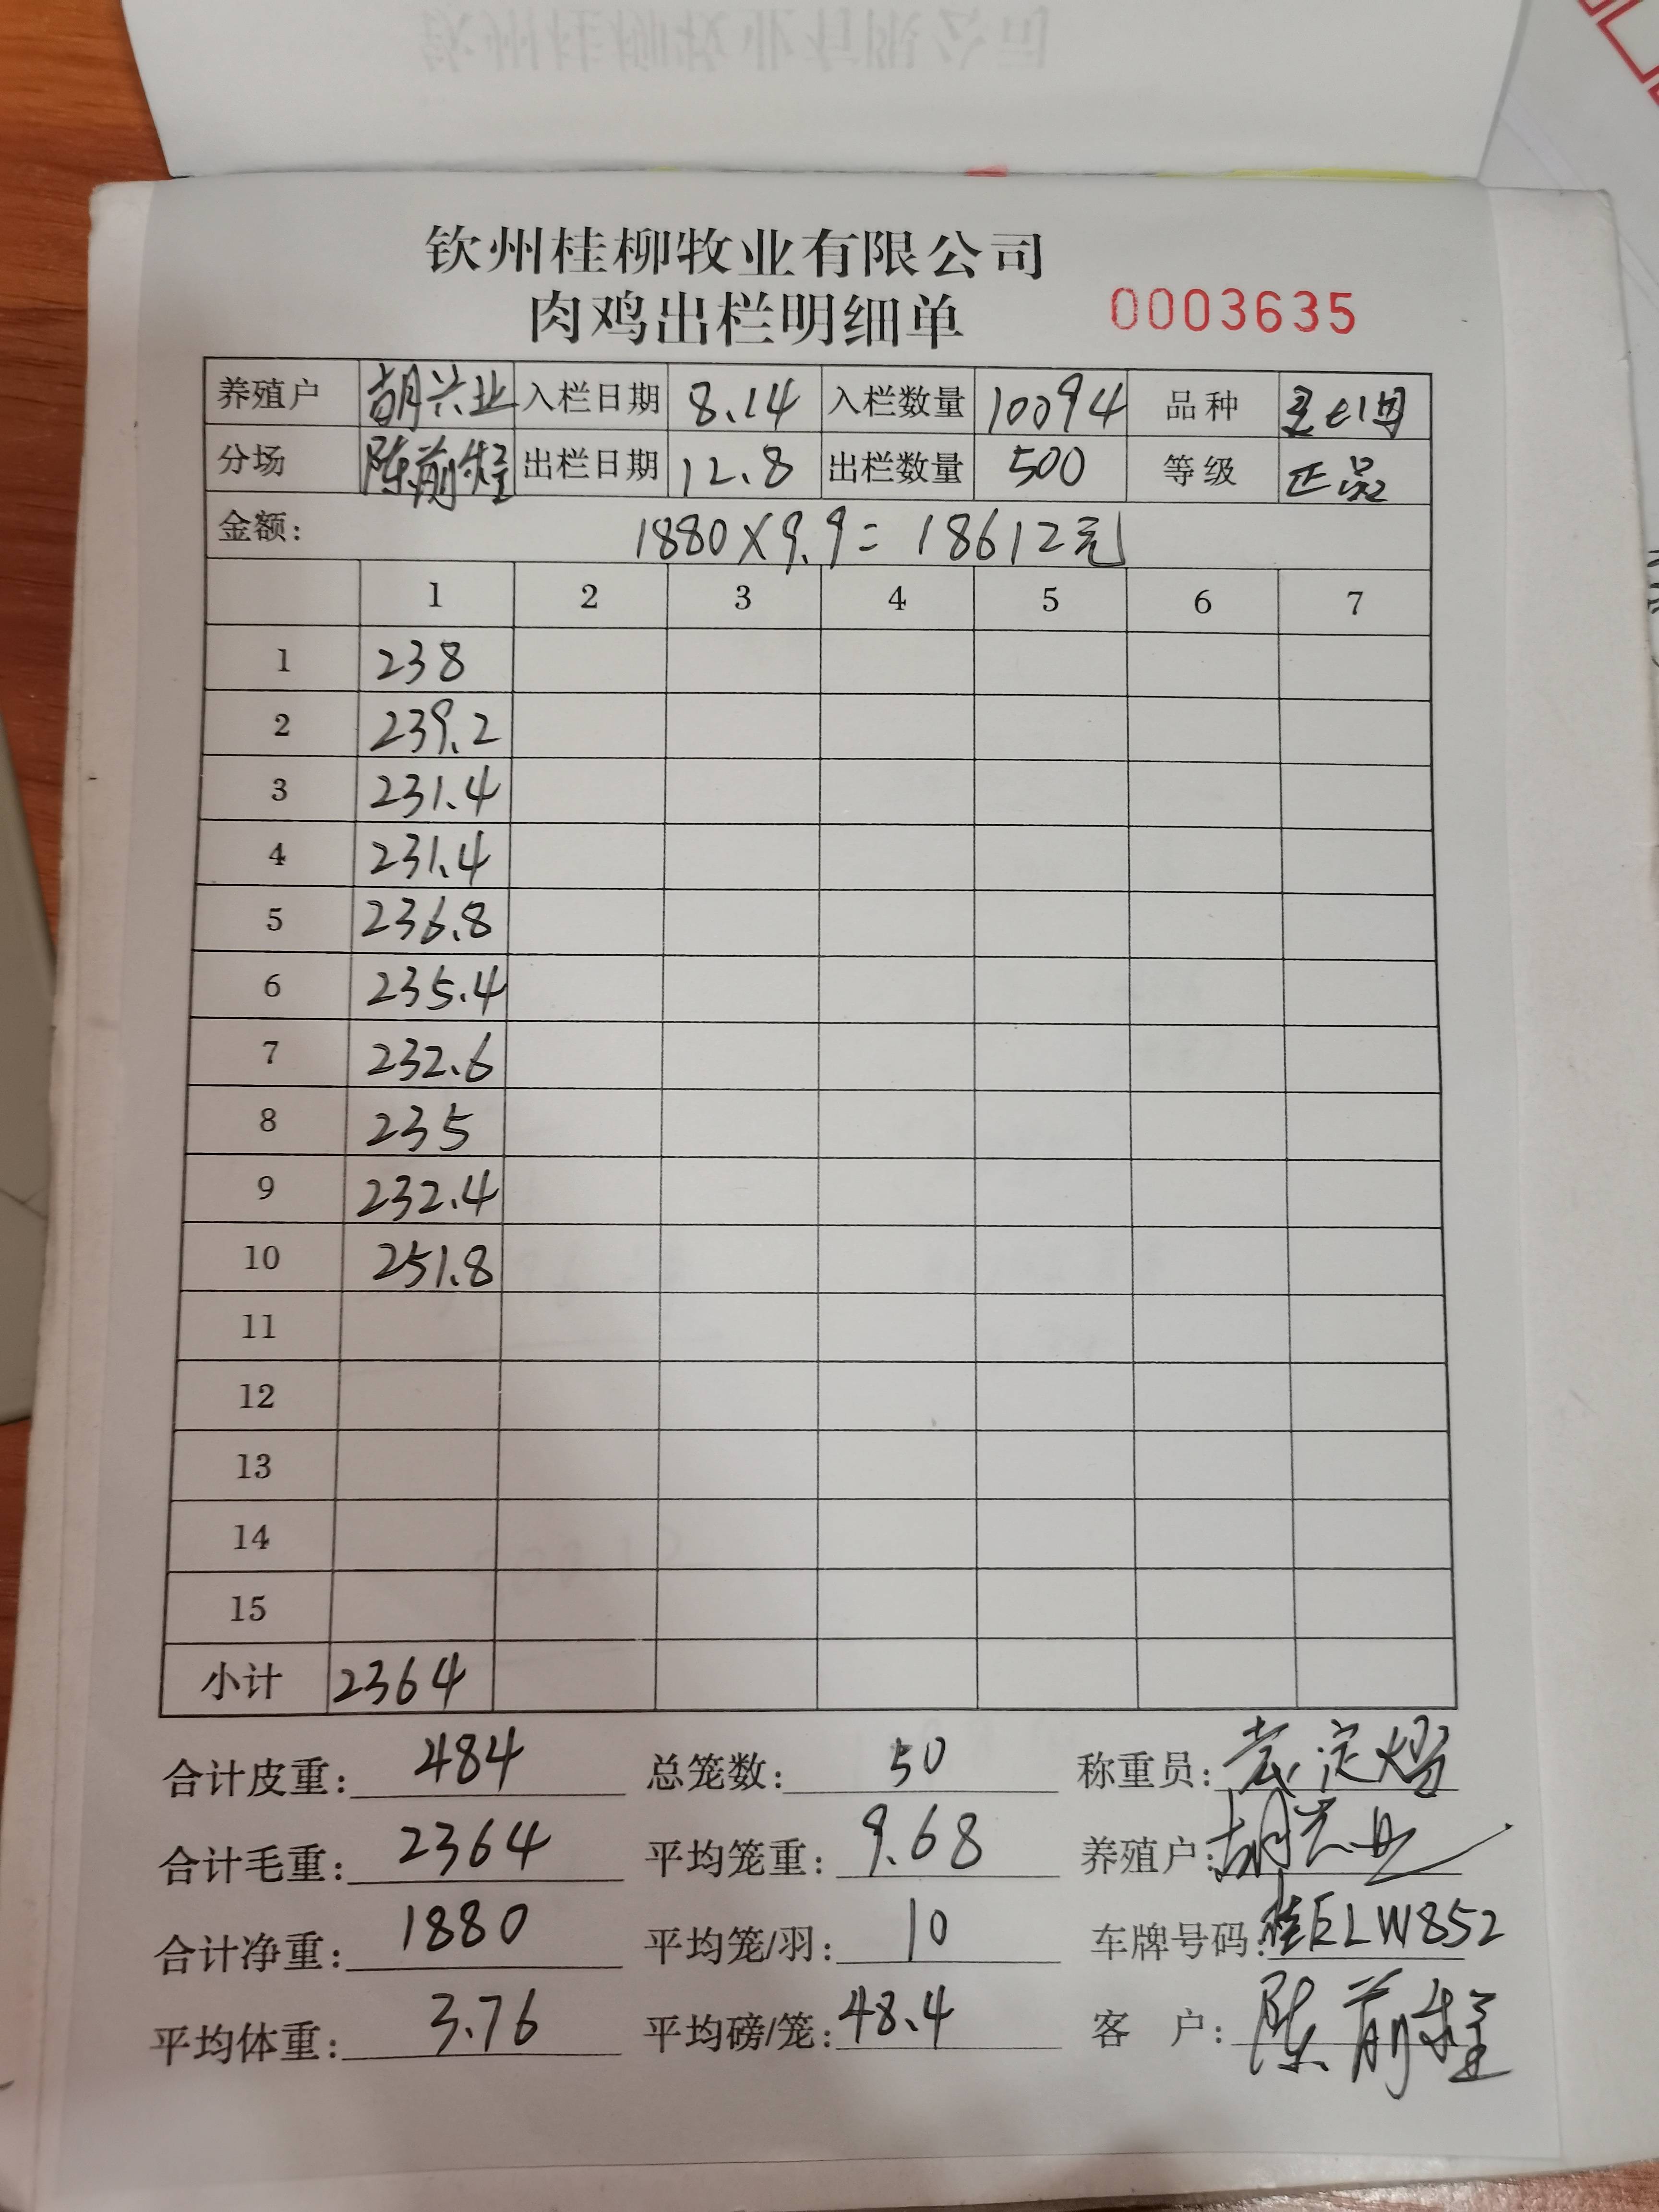 钦州桂柳牧业有限公司
肉鸡出栏明细单 0003635
养殖户 胡兴业 入栏日期 8.14 入栏数量 10094 品种
分场 陈前 出栏日期 12.8 出栏数量 500 等级 正品
金额: 1880×9.9=18612元
1 2 3 4 5 6 7
1 238
2 239.2
3 231.4
4 231.4
5 236.8
6 235.4
7 232.6
8 235
9 232.4
10 251.8
11
12
13
14
15
小计 2364
合计皮重: 484 总笼数: 50 称重员:
合计毛重: 2364 平均笼重: 9.68 养殖户: 胡兴业
合计净重: 1880 平均笼/羽: 10 车牌号码: 桂ELW852
平均体重: 3.76 平均磅/笼: 48.4 客 户: 陈前